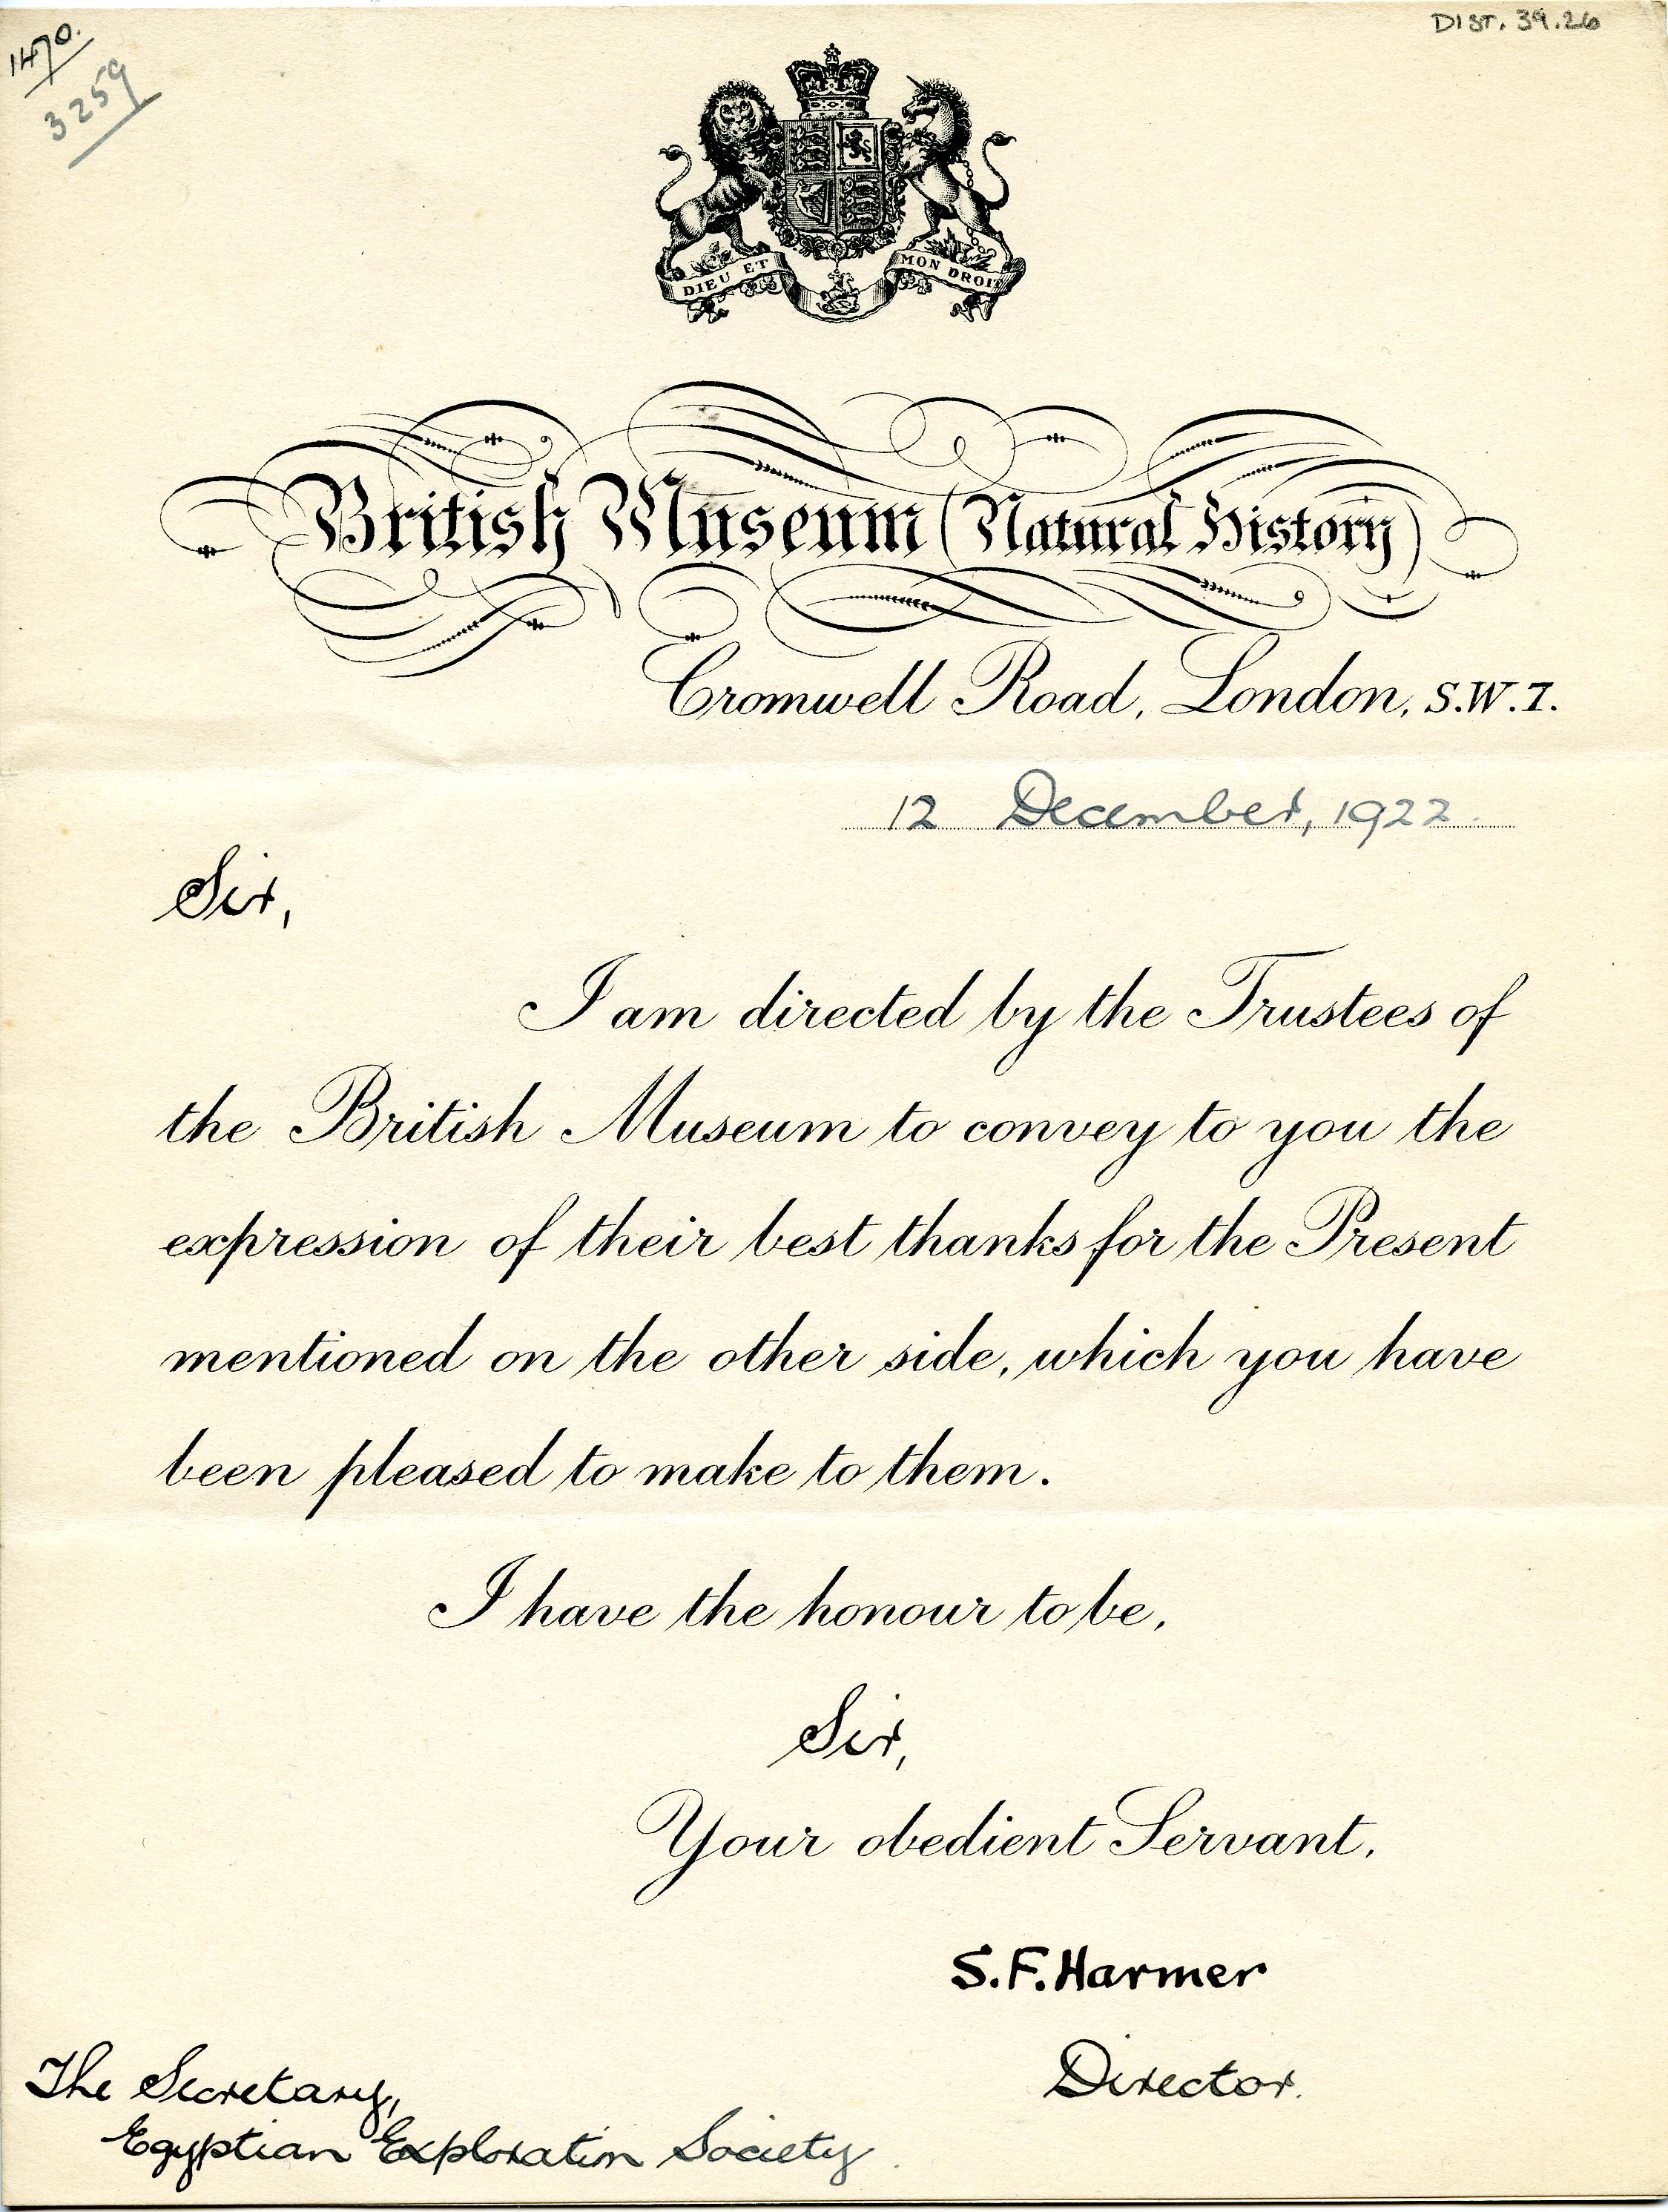 1470.
3259
DIST. 39.26
DIEU ET MON DROIT
British Museum (Natural History)
Cromwell Road, London, S.W.7.
12 December, 1922.
Sir,
I am directed by the Trustees of
the British Museum to convey to you the
expression of their best thanks for the Present
mentioned on the other side, which you have
been pleased to make to them.
I have the honour to be,
Sir,
Your obedient Servant,
S.F. Harmer
Director.
The Secretary,
Egyptian Exploration Society